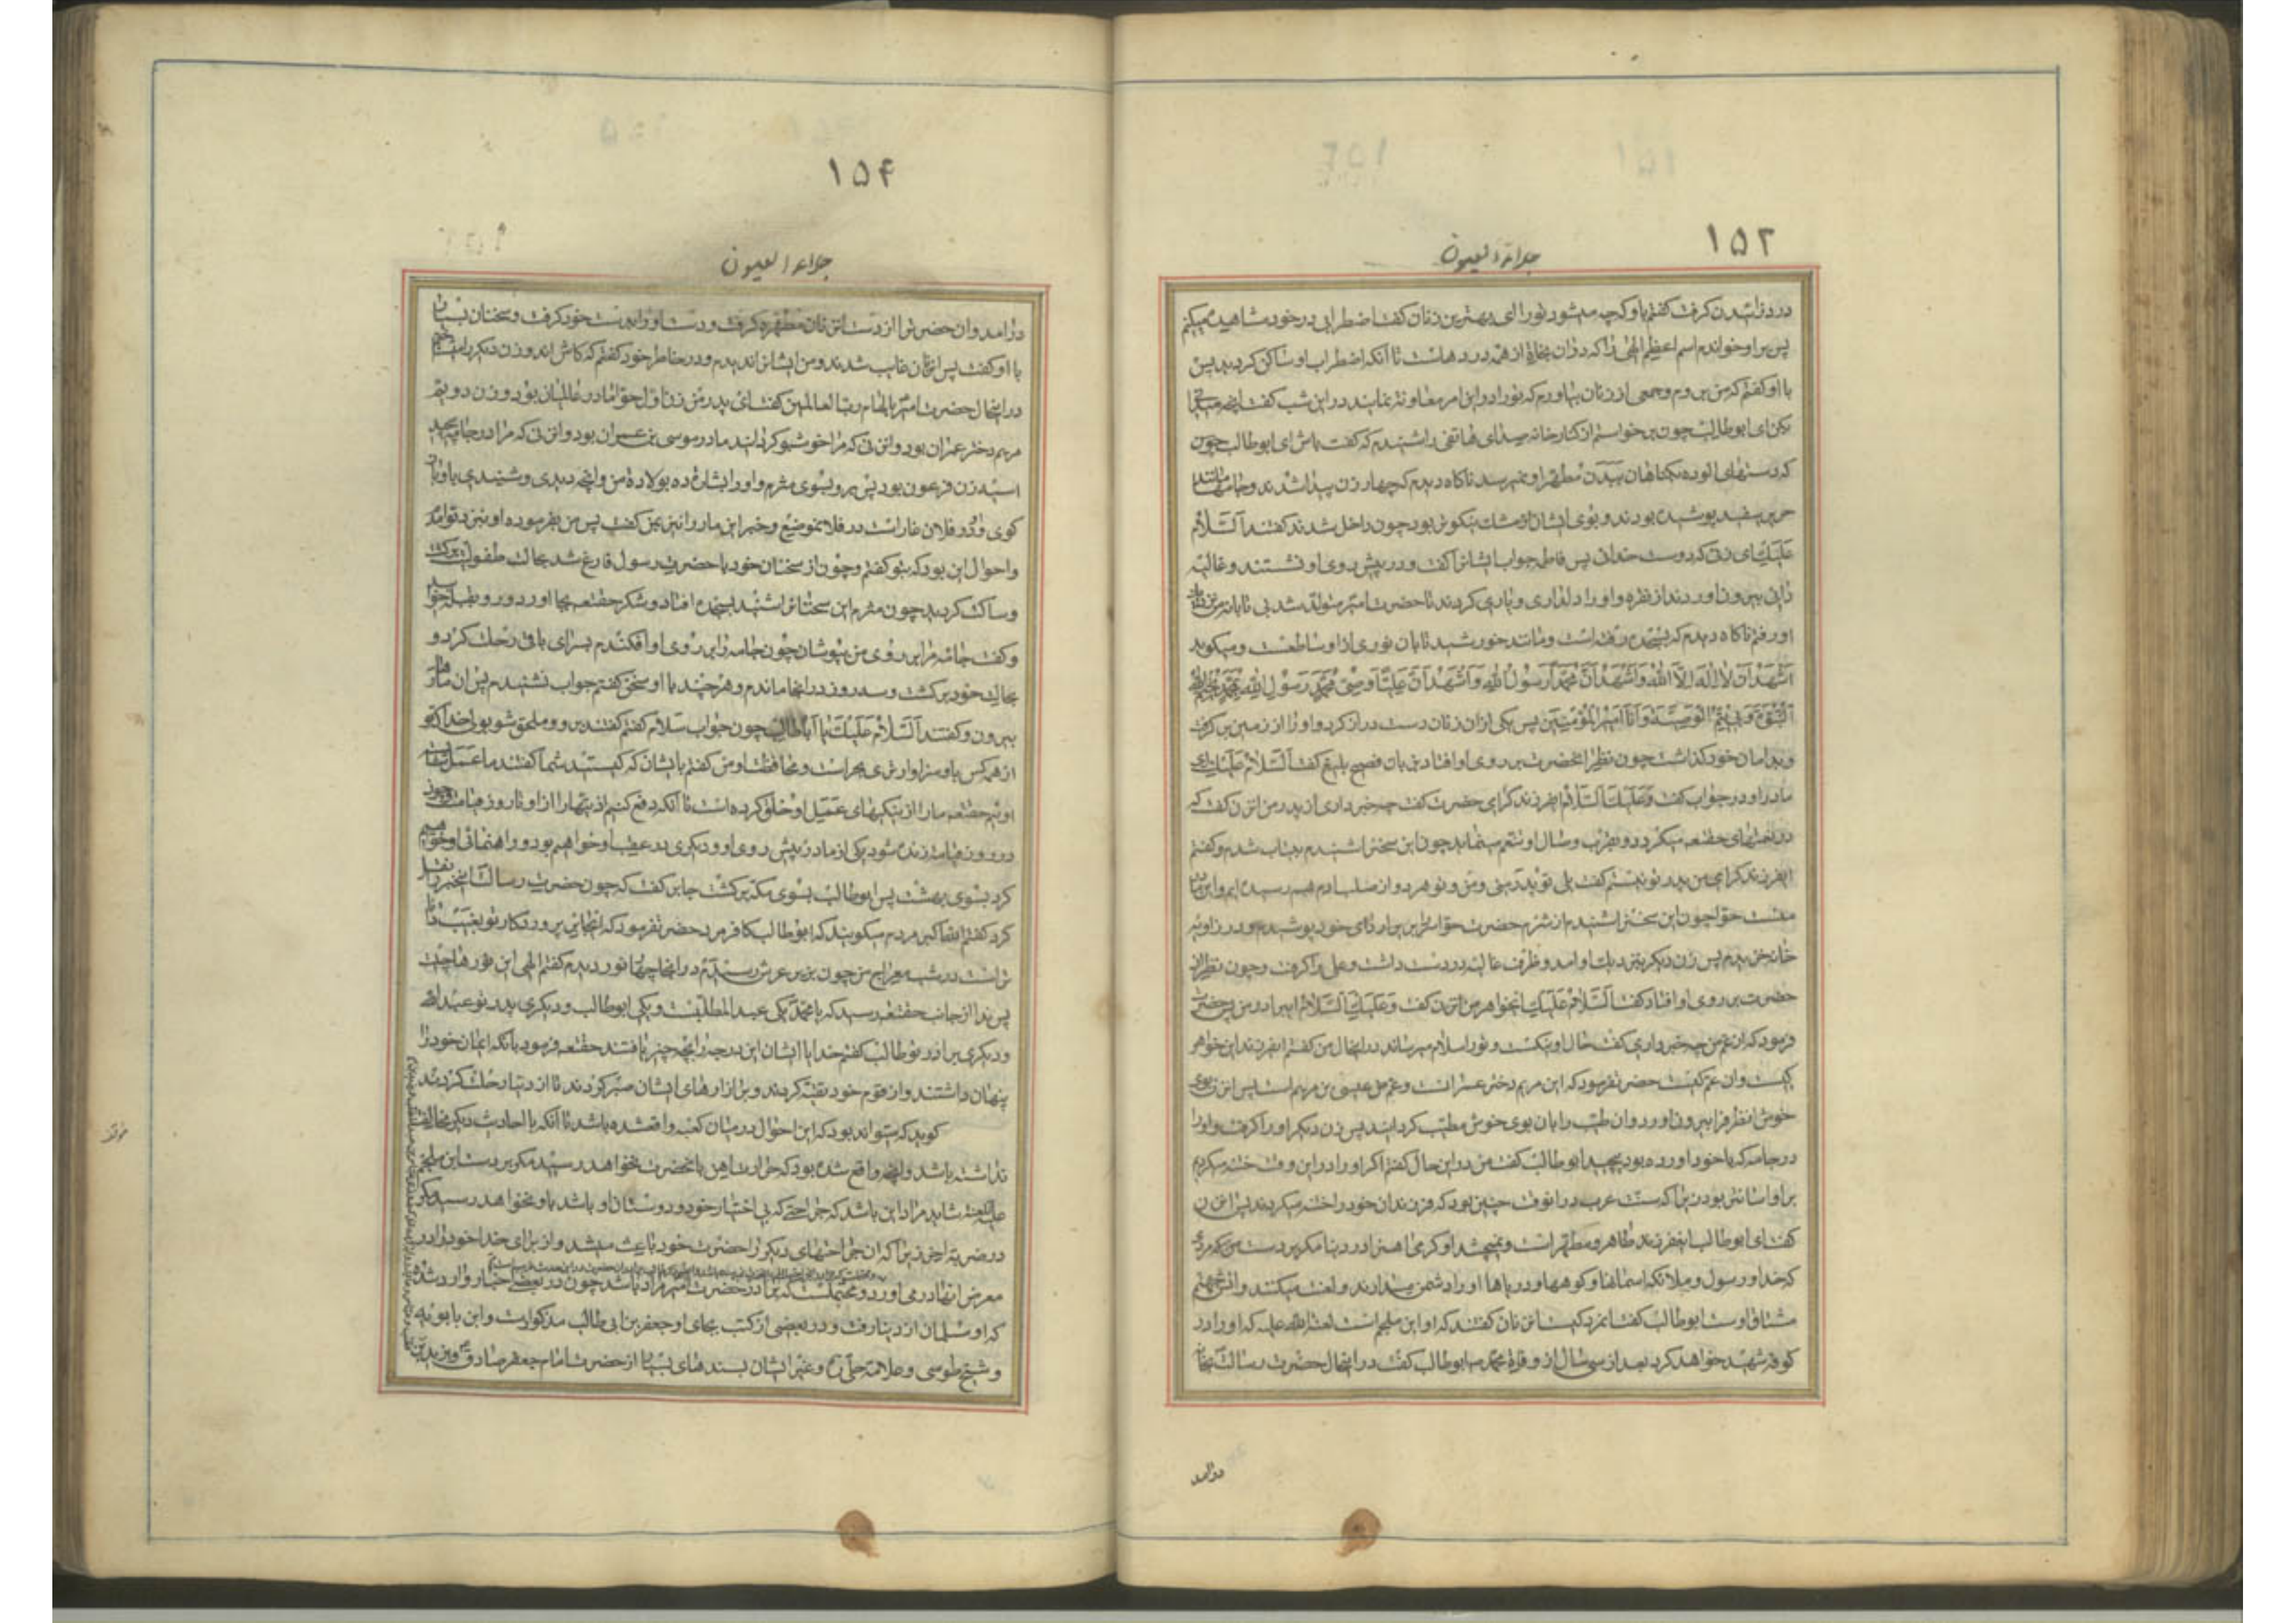 ۱۵۲
جلاء العیون
درد زائیدن گرفت گفتم باو که چه میشود تو را ای بهترین زنان گفت اضطرابی در خود مشاهده میکنم
پس بر او خواندم اسم اعظم الهی را که در آن نجاة از همه دردهاست تا آنکه اضطراب او ساکن گردید پس
با او گفتم که من میروم و جمعی از زنان بیاورم که تو را در این امر معاونة نمایند در این شب گفت
بکن ای ابوطالب چون برخواستم از کنار خانه صدای هاتفی را شنیدم که گفت باش ای ابوطالب چون
که دستهای الوده بگناهان ببدن مطهر او نمیرسد ناگاه دیدم که چهار زن پیدا شدند و جامهها مانند
حریر سفید پوشیده بودند و بوی ایشان از مشک نیکوتر بود چون داخل شدند گفتند اَلسَّلامُ
عَلَیكِ ای زنی که دوست خدائی پس فاطمه جواب ایشانرا گفت و در پیش روی او نشستند و غالیه
دانی بیرون آوردند از نقره و او را دلداری و یاری کردند تا حضرت امیر متولد شد بی تابانه من بنزد
او رفتم ناگاه دیدم که بسجده رفته است و مانند خورشید تابان نوری از او ساطعست و میگوید
اَشْهَدُ اَنْ لا اِلٰهَ اِلَّا اللهُ وَ اَشْهَدُ اَنَّ مُحَمَّداً رَسُولُ اللهِ وَ اَشْهَدُ اَنَّ عَلِیّاً وَصِیُّ مُحَمَّدٍ رَسُولِ اللهِ
النُّبُوَّةَ وَ بی یُتِمُّ الْوَصِیَّةَ وَ اَنَا اَمیرُ الْمُؤْمِنینَ پس یکی از آن زنان دست دراز کرد و او را از زمین برگرفت
و بدامان خود گذاشت چون نظر انحضرت بر روی او افتاد بزبان فصیح بلیغ گفت اَلسَّلامُ عَلَیكِ ای
مادر او در جواب گفت وَ عَلَیكَ السَّلامُ ایفرزند گرامی حضرت گفت چه خبر داری از پدر من آن زن گفت که
در نعمتهای حقتعه میگردد و بقرب وصال او تنعم مینماید چون این سخنرا شنیدم بیتاب شدم و گفتم
ایفرزند گرامی من پدر تو نیستم گفت بلی تو پدر منی و من و تو هر دو از صلب ادم بهم رسیده ایم و این مادر
منست حوا چون این سخنرا شنیدم از شرم حضرت حوا سر را بردای خود پوشیدم و در زاویه
خانه خزیدم پس زن دیگر بنزدیك او امد و ظرف غالیه در دست داشت و علی را گرفت و چون نظر آن
حضرت بر روی او افتاد گفت اَلسَّلامُ عَلَیكِ ایخواهر من آن زن گفت وَ عَلَیكَ السَّلامُ ایبرادر من پس حضرت
فرمود که از عم من چه خبر داری گفت حال او نیکست و تو را سلام میرساند در اینحال من گفتم ایفرزند این خواهر
کیست و ان عم کیست حضرت فرمود که این مریم دختر عمرانست و عم من عیسی بن مریم است پس آن زن بوی
خوشی از ظرف بیرون اورد و ان طیب را بان بوی خوش مطیب گردانید پس زن دیگر او را گرفت و او را
در جامه که با خود اورده بود پیچید ابوطالب گفت من در این حال گفتم اگر او را در این وقت ختنه میکردیم
بر او اسانتر بود زیرا که سنت عرب در انوقت چنین بود که فرزندان خود را ختنه میکردند پس آن زن
گفت ای ابوطالب اینفرزند طاهر و مطهر است و نمیچشد او گرمی آهن را در دنیا مگر بر دست مردی
که خدا و رسول و ملائکه اسمانها و کوهها و دریاها او را دشمن میدارند و لعنت میکنند و آتش جهنم
مشتاق اوست ابوطالب گفت ایمرد کیست آن زنان گفتند که او ابن ملجم است لعنة الله علیه که او را در
کوفه شهید خواهد کرد بعد از سی سال از وفاة محمد ص ابوطالب گفت در اینحال حضرت رسالت
در امد
۱۵۴
جلاء العیون
در امد و ان حضرترا از دست آن زنان مطهره گرفت و دست او را بدست خود گرفت و سخنان بسیار
با او گفت پس آن زنان غایب شدند و من ایشانرا ندیدم و در خاطر خود گفتم که کاش اندو زن دیگر را
در اینحال حضرت امیر بالهام رب العالمین گفت ای پدر من زن اول حوا مادر عالمیان بود و زن دویم
مریم دختر عمران بود و آن زنی که مرا خوشبو گردانید مادر موسی بن عمران بود و آن زنی که مرا در جامه پیچید
اسیه زن فرعون بود پس برو بسوی مثرم و او را بشارة ده بولادة من و انچه دیدی و شنیدی باو باز
گوی و او در فلان غار است در فلان موضع و خبر این مار را نیز بمن گفت پس من بفرموده او نزد تو امدم
و احوال این بود که بتو گفتم و چون از سخنان خود با حضرت رسول فارغ شد بحالت طفولیت برگشت
و ساکت گردید چون مثرم این سخنانرا شنید بسجده افتاد و شکر حقتعه بجا اورد و رو بقبله خوابید
و گفت جامه مرا بر روی من بپوشان چون جامه را بر روی او افکندم بسرای باقی رحلت کرد و
بحالت خود برگشت و سه روز در انجا ماندم و هر چند با او سخن گفتم جواب نشنیدم پس ان مار
بیرون و گفتند اَلسَّلامُ عَلَیكَ یا اَباطالِب چون جواب سلام گفتم گفتند برو و ملحق شو بولی خدا که تو
از همه کس باو سزاوارتری بحراست و محافظت او من گفتم بایشان که کیستید شما گفتند ما عمل شایسته
اوئیم حقتعه ما را از نیکیهای عمل او خلق کرده است تا آنکه دفع کنیم اذیتها را از او تا روز قیامت و چون
در روز قیامت زنده شود یکی از ما در پیش روی او و دیگری در عقب او خواهیم بود و راهنمائی او خواهیم
کرد بسوی بهشت پس ابوطالب بسوی مکه برگشت جابر گفت که چون حضرت رسالت اینخبر را نقل
کرد گفتم الله اکبر مردم میگویند که ابوطالب کافر مرد حضرت فرمود که ایجابر پروردگار تو بغیب داناتر
است در شب معراج من چون بزیر عرش رسیدم در انجا چهار نور دیدم گفتم الهی این نورها چیست
پس ندا از جانب حقتعه رسید که یا محمد یکی عبدالمطلبست و یکی ابوطالب و دیگری پدر تو عبدالله
و دیگری برادر تو طالب گفتم خدایا ایشان این درجه را بچه چیز یافتند حقتعه فرمود بانکه ایمان خود را
پنهان داشتند و از قوم خود تقیه کردند و بر ازارهای ایشان صبر کردند تا از دنیا رحلت کردند
گوید که میتواند بود که این احوال در میان کعبه واقع شده باشد تا آنکه با احادیث دیگر مخالفت
نداشته باشد و انچه واقع شده بود که حرارت اهن بانحضرت نخواهد رسید مگر بر دست ابن ملجم
علیه اللعنه شاید مراد این باشد که جراحتی که بی اختیار خود و دوستان او باشد باو نخواهد رسید مگر
در ضربه اخر زیرا که ان جراحتهای دیگر را حضرت خود باعث میشد و از برای خدا خود را در
معرض انها در می اورد و محتملست که برادر حضرت امیر مراد باشد چون در بعضی اخبار وارد شده
که او مسلمان از دنیا رفت و در بعضی از کتب بجای او جعفر بن ابی طالب مذکور است و ابن بابویه
و شیخ طوسی و علامه حلی ره و غیر ایشان بسندهای بسیار از حضرت امام جعفر صادق ع و یزید بن